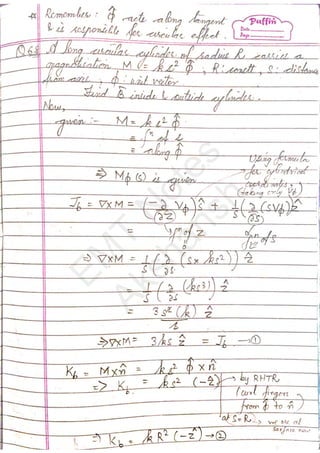 * Remember : φ̂ acts along tangent
& is responsible for circular effect.
Puffin
Date
Page
Q 6.8 A long circular cylinder of radius R carries a
magnetisation M (= k s² φ̂, R : const, s : distance
from axis, φ̂ : unit vector
Find B̄ inside & outside cylinder.
Now,
given :- M = k s² φ̂
= fⁿ of s
= along φ̂
⇒ Mφ(s) is given
Using formula
for cylindrical
coordinates
(taking only Vφ)
J_b = ∇×M = (-∂/∂z Vφ) ŝ + 1/s (∂/∂s (sVφ)) ẑ
= fⁿ of z fⁿ of s
0
⇒ ∇×M = 1/s (∂/∂s (s × ks²)) ẑ
= 1/s (∂/∂s (ks³)) ẑ
= 3s² (k) ẑ / s
⇒ ∇×M = 3ks ẑ = J_b —①
K_b = M×n̂ = ks² φ̂ × n̂
⇒ K_b = ks² (-ẑ) → by RHTR
(curl fingers
from φ̂ to n̂)
at s=R → we are at
surface now
⇒ K_b = kR² (-ẑ) → ②
EMT Notes